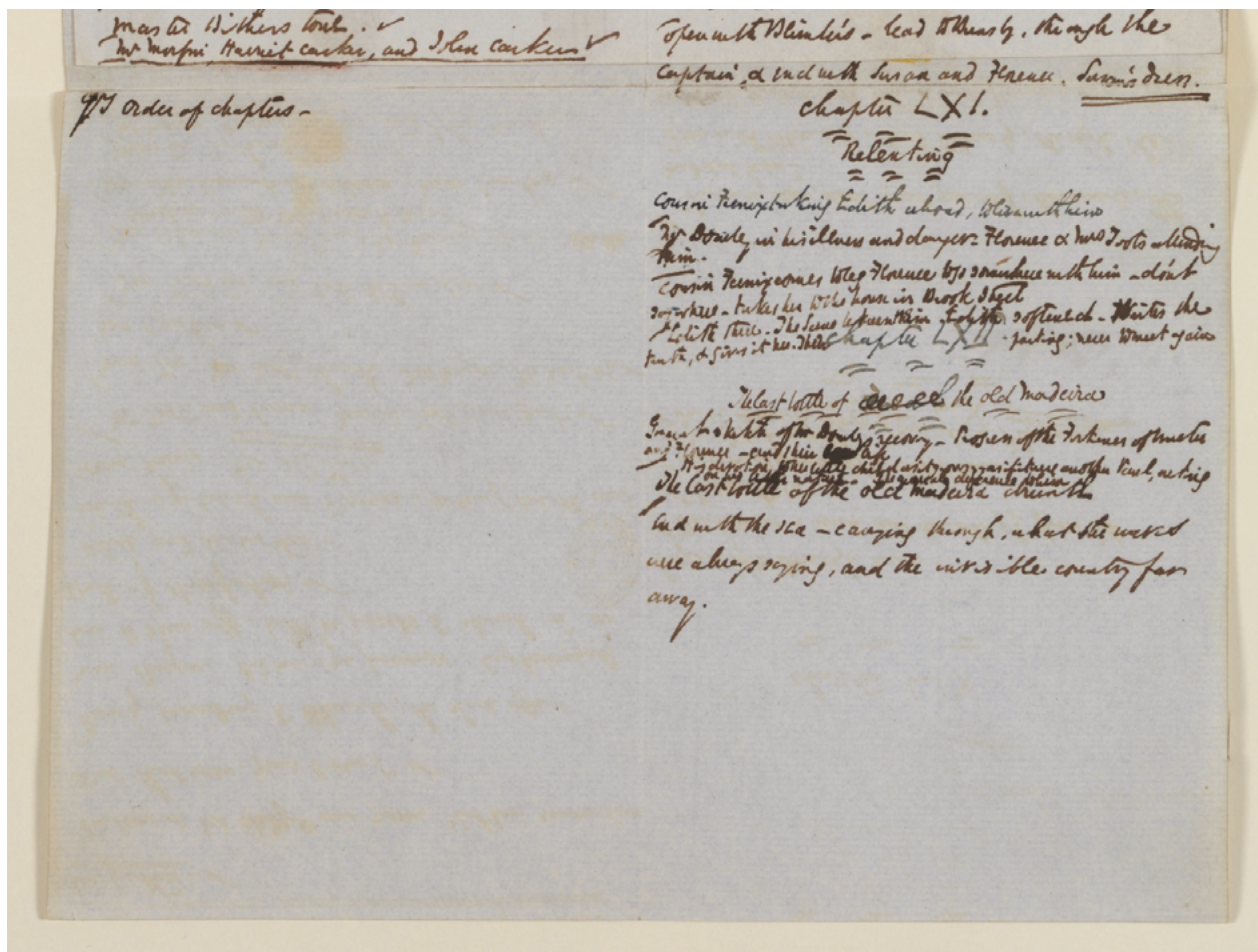 master Bitherstone. ✓
Mr Morfin Harriet Carker, and John Carker ✓
Qy Order of chapters –
Open with Blimber's – lead to Briefly, through the
Captain, & end with Susan and Florence. Susan's dress.
Chapter LXI.
Relenting
Cousin Feenix taking Edith abroad, to live with him
Mr Dombey in his illness and danger – Florence & Mrs Toots attending
him.
Cousin Feenix comes to beg Florence to go somewhere with him – don't
say where – takes her to the house in Brook Street
Edith there. The Scene between them. Edith softened – Writes the
truth, & gives it her. Their parting; never to meet again
Chapter LXII
The last bottle of the old Madeira
of Mr Dombey's recovery – of the Fortunes of Walter
and Florence – and their
His devotion to the little child another Paul, acting
on his
The last bottle of the old Madeira drunk
End with the sea – carrying through, what the waves
were always saying, and the invisible country far
away.